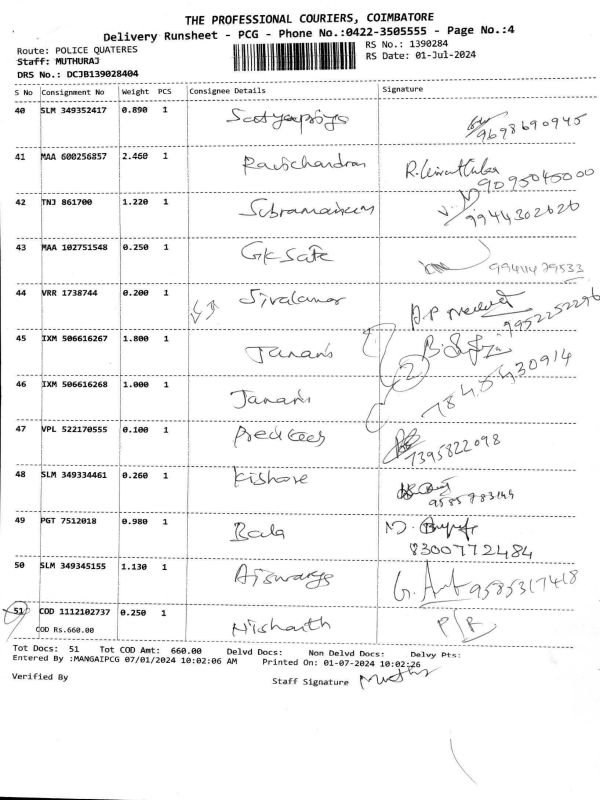 THE PROFESSIONAL COURIERS, COIMBATORE
Delivery Runsheet - PCG - Phone No.:0422-3505555 - Page No.:4
Route: POLICE QUATERES
RS No.: 1390284
Staff: MUTHURAJ
RS Date: 01-Jul-2024
DRS No.: DCJB139028404
S No Consignment No Weight PCS Consignee Details Signature
40 SLM 349352417 0.890 1 9698690945
41 MAA 600256857 2.460 1 Ravichandran 9095045000
42 TNJ 861700 1.220 1 9944302626
43 MAA 102751548 0.250 1 GK Safe
44 VRR 1738744 0.200 1 9952252296
45 IXM 506616267 1.800 1 Janani
2
46 IXM 506616268 1.000 1 Janani
47 VPL 522170555 0.100 1 7395822098
48 SLM 349334461 0.260 1 Kishore
49 PGT 7512018 0.980 1 Bala
8300772484
50 SLM 349345155 1.130 1 Aiswarya 9585317418
51 COD 1112102737 0.250 1 Nishanth P/R
COD Rs.660.00
Tot Docs: 51 Tot COD Amt: 660.00 Delvd Docs: Non Delvd Docs: Delvy Pts:
Entered By :MANGAIPCG 07/01/2024 10:02:06 AM Printed On: 01-07-2024 10:02:26
Verified By Staff Signature